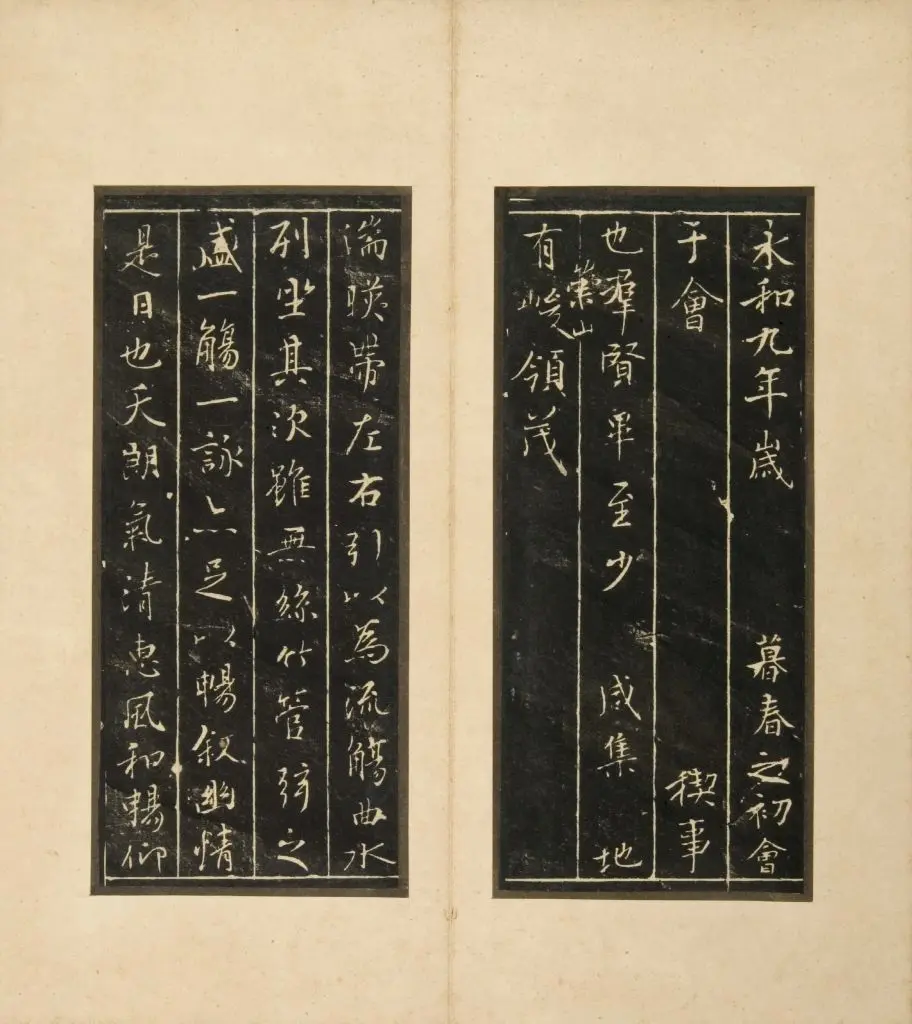 永和九年歲暮春之初會
于會稧事
也羣賢畢至少咸集地
崇山
有峻領茂
湍暎帶左右引以為流觴曲水
列坐其次雖無絲竹管弦之
盛一觴一詠亦足以暢叙幽情
是日也天朗氣清惠風和暢仰